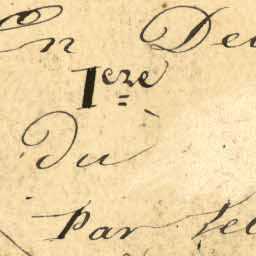 En De
1ere
Du
Par